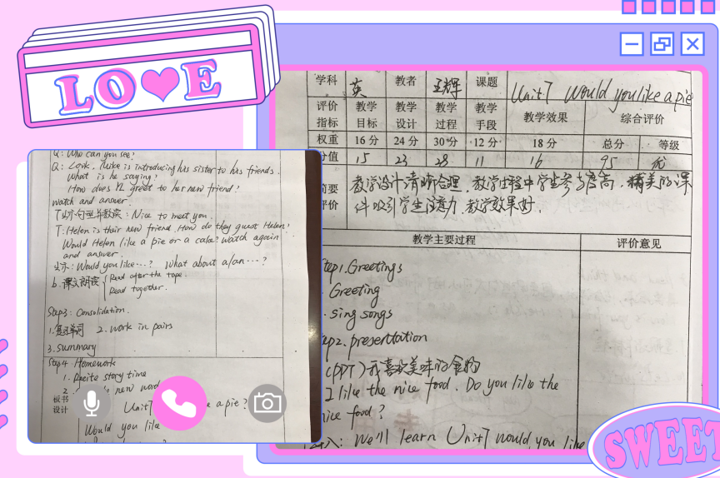 LOVE
Q: Who can you see?
Q: Look. Mike is introducing his sister to his friends.
What is he saying?
How does YL greet to her new friend?
watch and answer.
T出示句型并教读: Nice to meet you.
T: Helen is their new friend. How do they greet Helen?
Would Helen like a pie or a cake? watch again
and answer.
出示: Would you like…? What about a/an…?
b. 课文朗读 Read after the tape.
Read together.
Step3: Consolidation.
1.复习单词 2. work in pairs
3. summary
Step4 Homework
1. Recite story time
2. new word
板书设计
Unit7 a pie?
Would you like
学科 英 教者 王辉 课题 Unit7 Would you like a pie
评价指标 教学目标 教学设计 教学过程 教学手段 教学效果 综合评价
权重 16分 24分 30分 12分 18分 总分 等级
分值 15 23 28 11 16 95 优
简要评价 教学设计清晰合理,教学过程中学生参与度高,精美的课
件吸引学生注意力,教学效果好.
教学主要过程 评价意见
Step1. Greetings
Greeting
sing songs
Step2. presentation
(PPT) 我喜欢美味的食物
I like the nice food. Do you like the
nice food?
导入: We'll learn Unit7 would you like
SWEET